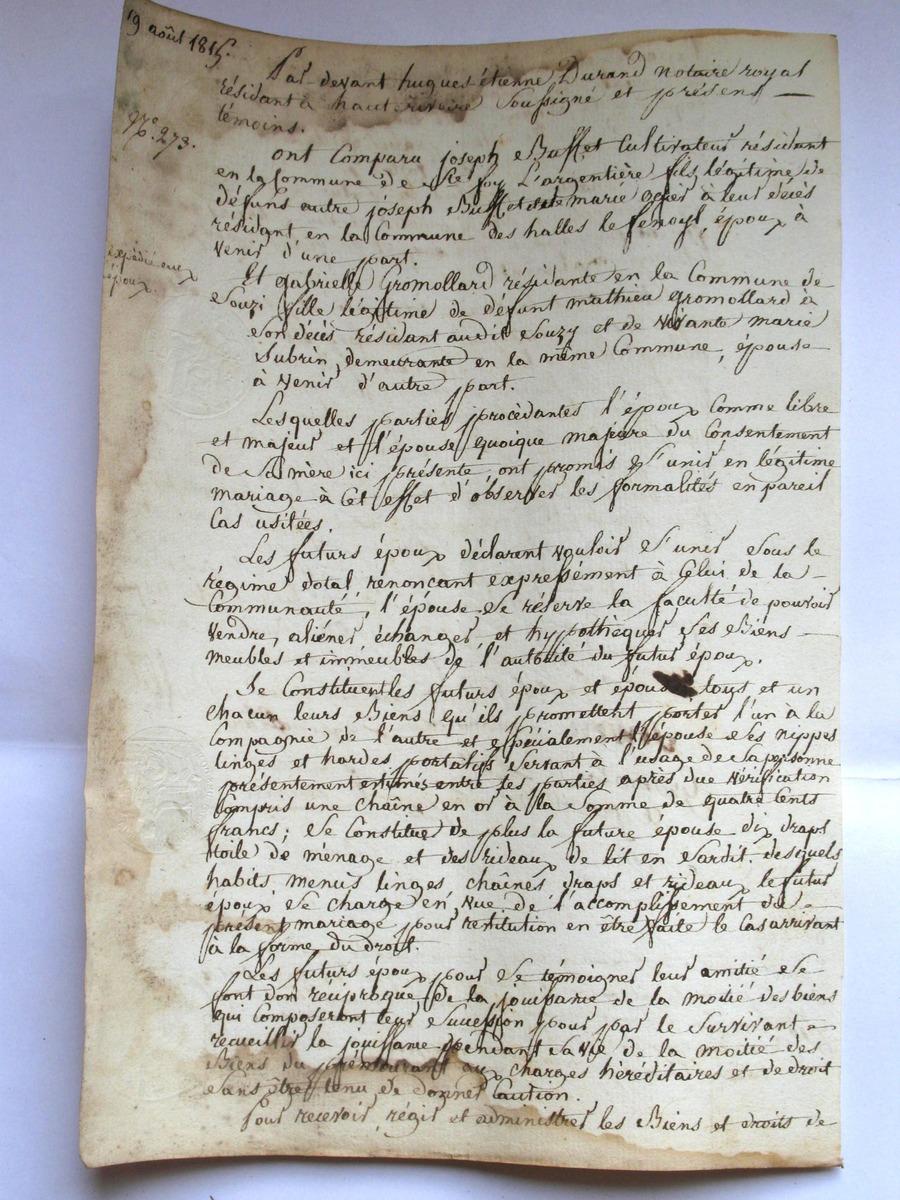 19 août 1815.
Par devant hugues étienne Durand Notaire royal
résidant à haut rivoire Soussigné et présens
témoins.
N.° 273.
ont Comparu joseph Buffet Cultivateur résidant
en la Commune de Ste foy L'argentière fils légitime de
défuns autre joseph Buffet et marié ogier à leur décès
résidant en la Commune des halles le fenoyl, époux à
Venir d'une part.
expédié aux
époux
Et gabrielle Gromollard résidante en la Commune de
Souzi fille légitime de défunt mathieu gromollard à
son décès résidant audit Souzy et de vivante marie
Subrin demeurante en la même Commune, épouse
à Venir d'autre part.
Lesquelles parties procèdantes l'époux Comme libre
et majeur et l'épouse quoique majeure du Consentement
de Sa mère ici présente, ont promis s'unir en légitime
mariage à Cet effet d'observer les formalités en pareil
Cas usitées.
Les futurs époux déclarent Vouloir s'unir Sous le
régime dotal renonçant expressément à Celui de la
Communauté, l'épouse Se réserve la faculté de pouvoir
Vendre, aliéner échanger et hypothèquer Ses Biens
meubles et immeubles de l'autorité du futur époux.
Se Constituent les futurs époux et épouse tous et un
chacun leurs Biens qu'ils promettent porter l'un à la
Compagnie de l'autre et spécialement l'épouse Ses nippes
linges et hardes portatifs Servant à l'usage de Sa personne
présentement estimés entre les parties après due Vérification
Compris une chaîne en or à la Somme de quatre Cents
francs; Se Constitue de plus la future épouse dix draps
toile de ménage et des rideaux de lit en Cardit. desquels
habits menus linges, chaînes draps et rideaux le futur
époux Se Charge en Vue de l'accomplissement du
présent mariage pour restitution en être faite le Cas arrivant
à la forme du droit.
Les futurs époux pour Se témoigner leur amitié Se
font don réciproque de la jouissance de la moitié des biens
qui Composeront leur Succession pour par le Survivant
recueillir la jouissance pendant sa vie de la moitié des
Biens du prémourant aux charges héréditaires et de droit
Sans être tenu de donner Caution.
Pour recevoir, régir et administrer les Biens et droits de